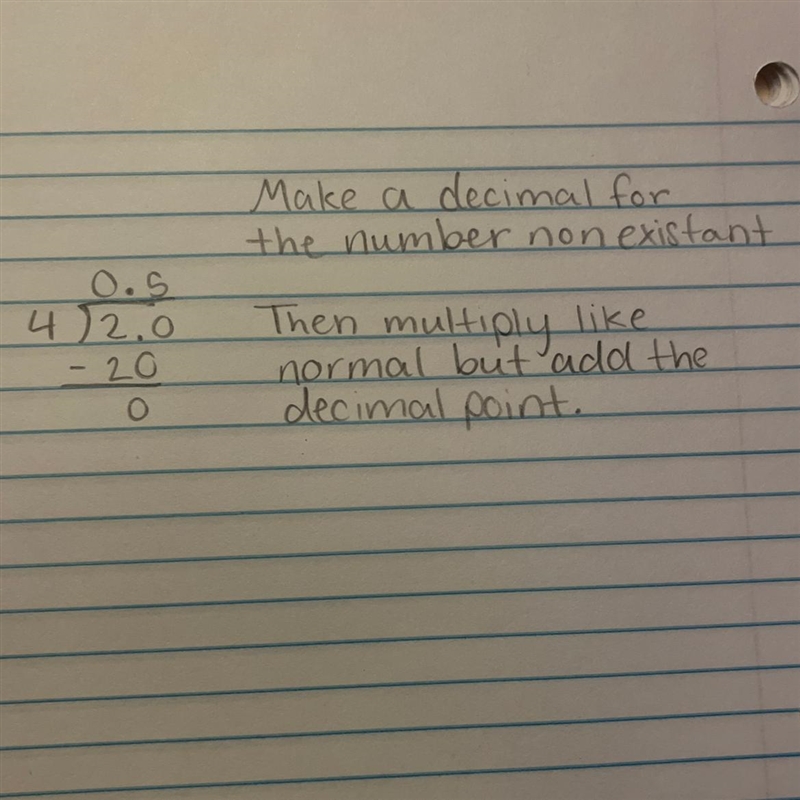 Make a decimal for
the number nonexistant
0.5
4)2.0 Then multiply like
- 20 normal but add the
0 decimal point.